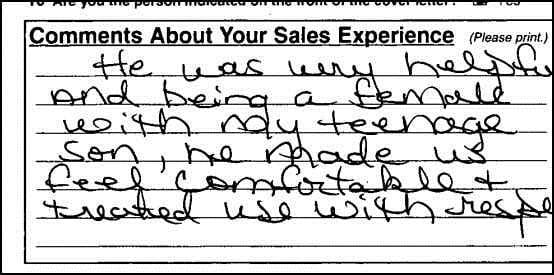 10 Are you the person indicated on the front of the cover letter? Yes
Comments About Your Sales Experience (Please print.)
He was very helpfu
And being a female
with my teenage
son, he made us
feel comfortable +
treated use with respe